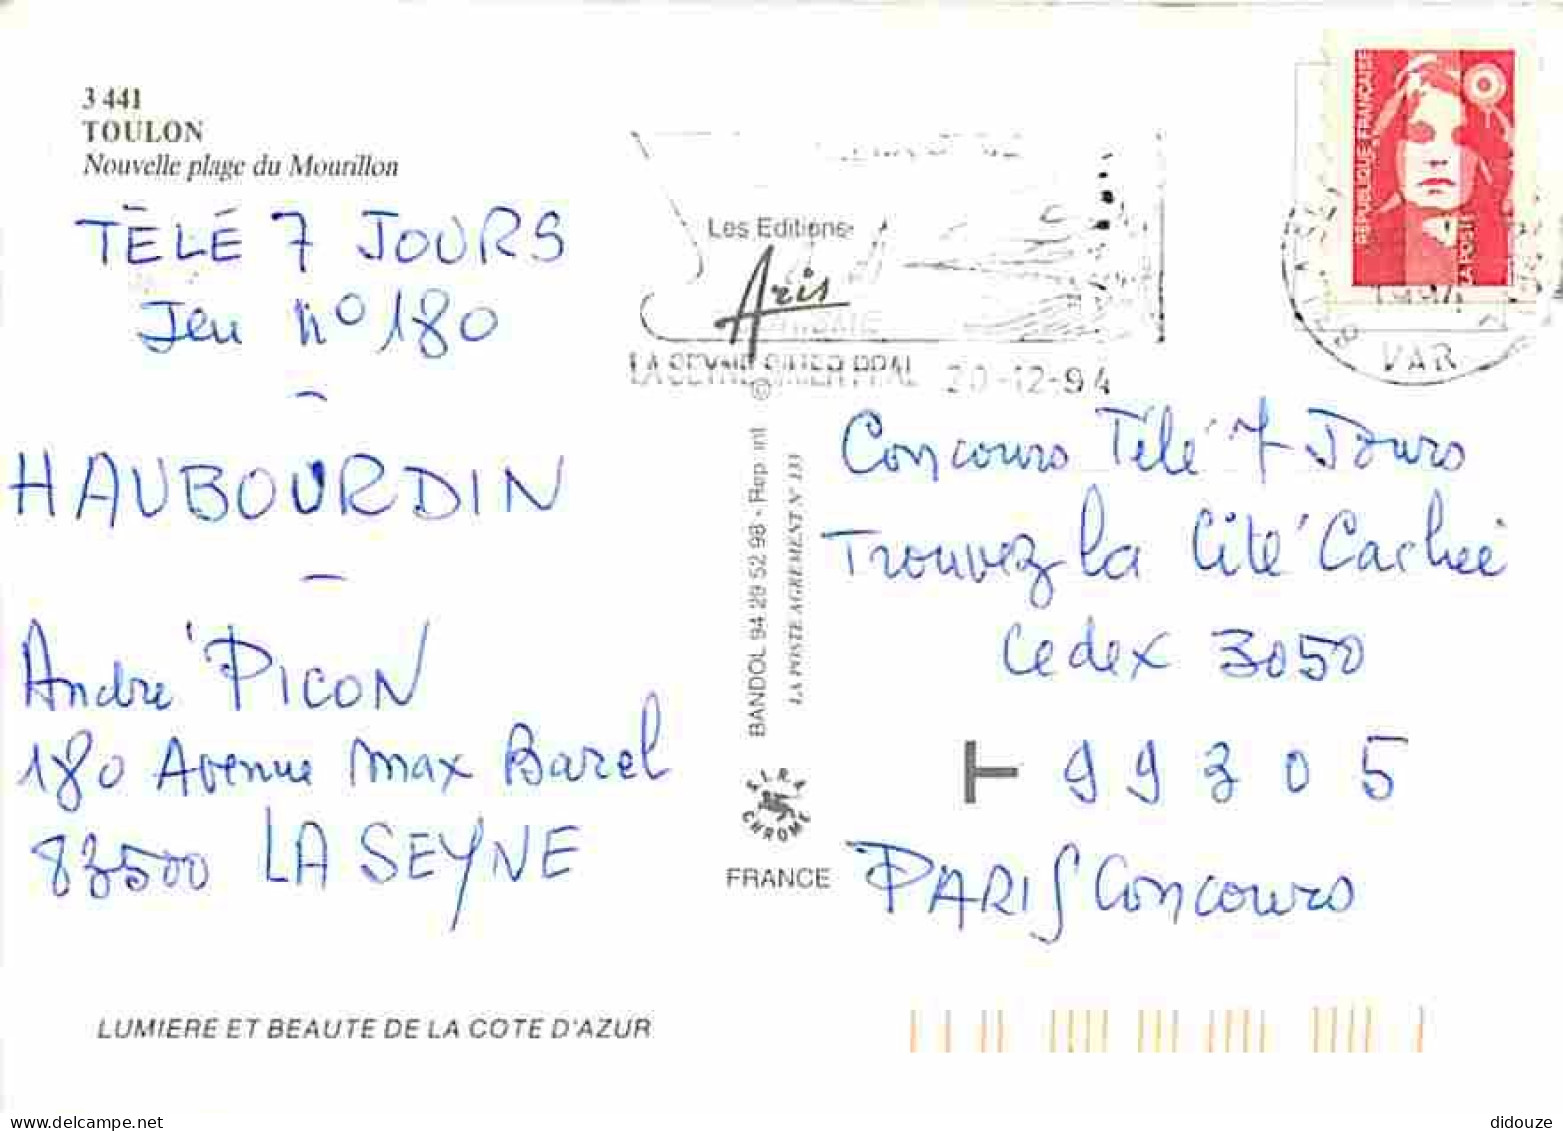 3 441
TOULON
Nouvelle plage du Mourillon
TÉLÉ 7 JOURS
Jeu n° 180
HAUBOURDIN
André PICON
180 Avenue Max Barel
83500 LA SEYNE
LUMIERE ET BEAUTE DE LA COTE D'AZUR
Les Editions
Aris
LA SEYNE S/MER PPAL 20-12-94
©
BANDOL 94 29 52 98 - Rep. int
LA POSTE AGREMENT N° 133
ELRA
CHROME
FRANCE
REPUBLIQUE FRANÇAISE
LA POSTE
1994
VAR
Concours Télé 7 Jours
Trouvez la Cité Cachée
Cedex 3050
99305
PARIS Concours
www.delcampe.net
didouze